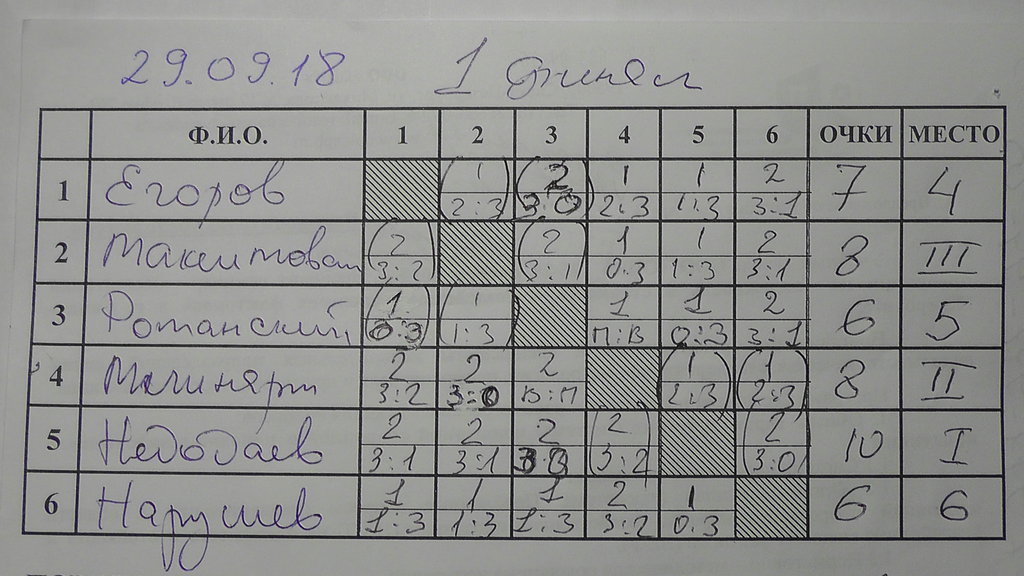 29.09.18 1 финал
Ф.И.О. 1 2 3 4 5 6 ОЧКИ МЕСТО
1 Егоров (1) (2) 1 1 2 7 4
2:3 3:0 2:3 1:3 3:1
2 (2) (2) 1 1 2 8 III
3:2 3:1 0:3 1:3 3:1
3 Ротанский (1) (1) 1 1 2 6 5
0:3 1:3 П:В 0:3 3:1
4 2 2 2 (1) (1) 8 II
3:2 3:0 В:П 2:3 2:3
5 Недодаев 2 2 2 (2) (2) 10 I
3:1 3:1 3:0 3:2 3:0
6 Нарушев 1 1 1 2 1 6 6
1:3 1:3 1:3 3:2 0:3